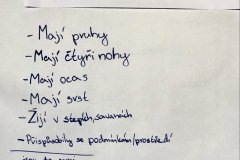 - Mají pruhy
- Mají čtyři nohy
- Mají ocas
- Mají srst
- Žijí v stepích, savanách
- Přispůsobily se podmínkám/prostředí